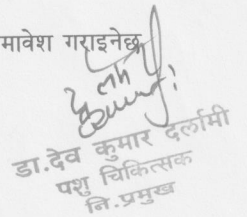 मावेश गराइनेछ
डा.देव कुमार दर्लामी
पशु चिकित्सक
नि.प्रमुख